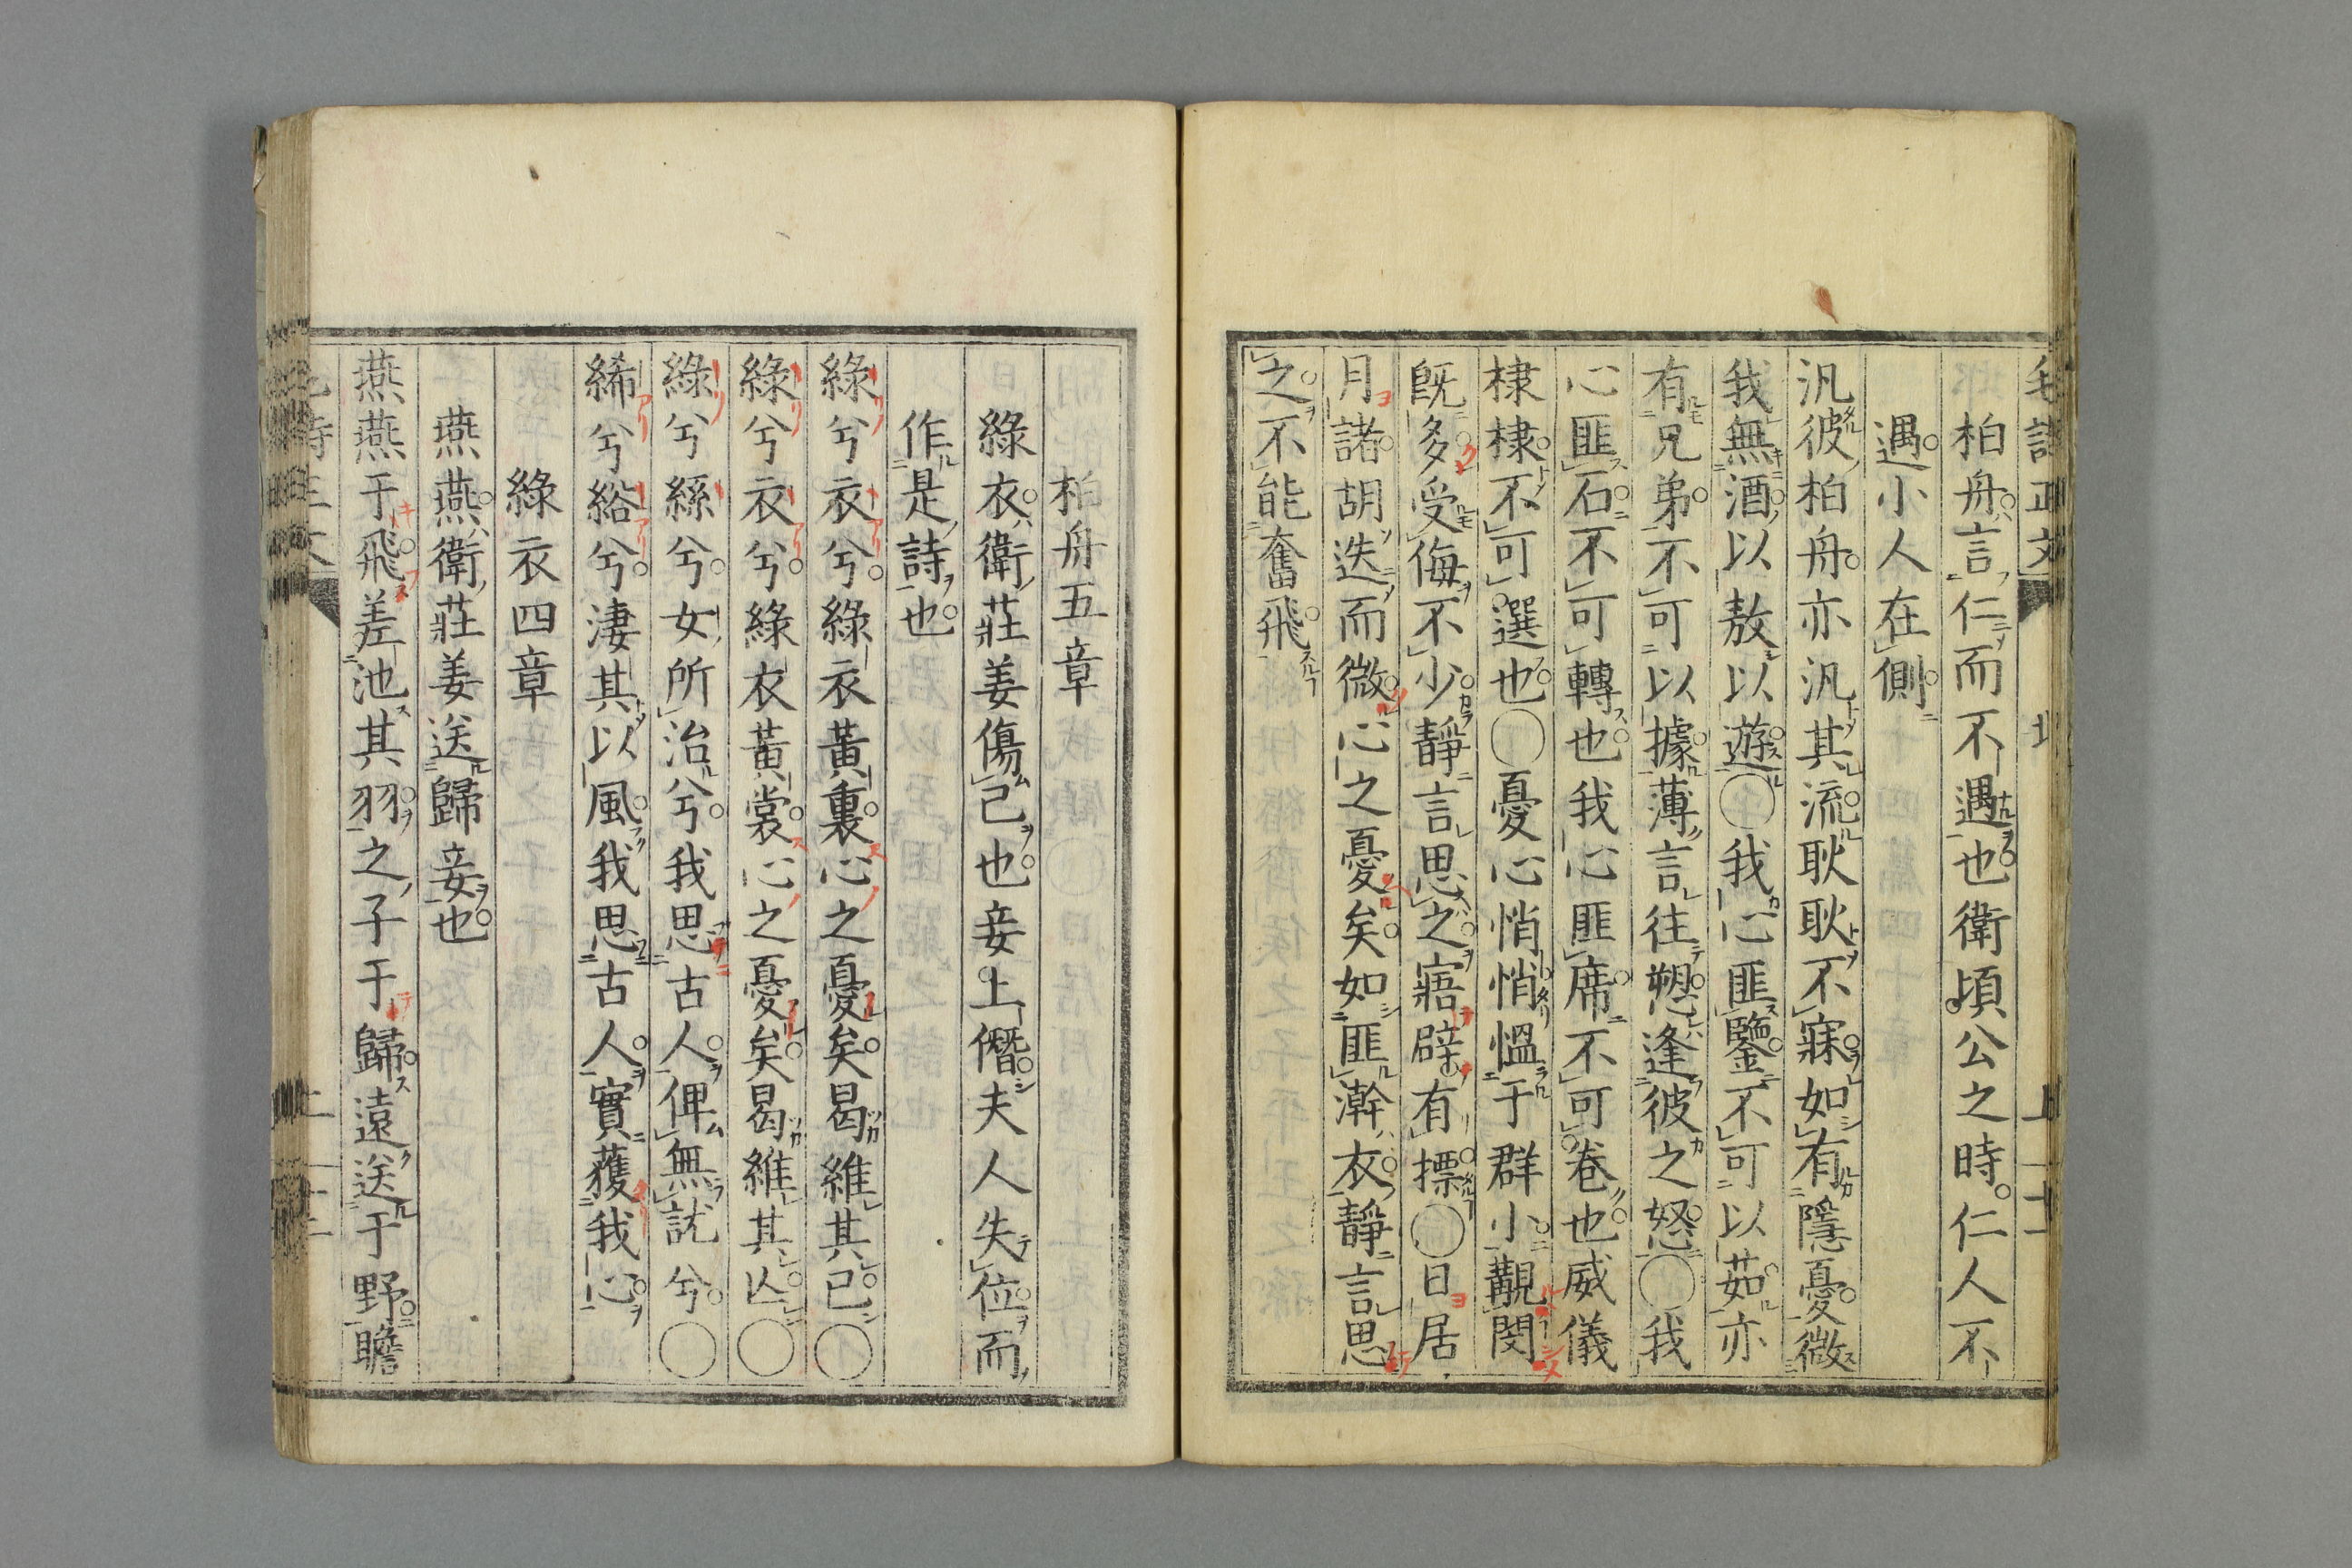 柏舟言仁而不遇也衛頃公之時仁人不
遇小人在側
汎彼柏舟亦汎其流耿耿不寐如有隱憂微
我無酒以敖以遊○我心匪鑒不可以茹亦
有兄弟不可以據薄言往愬逢彼之怒○我
心匪石不可轉也我心匪席不可卷也威儀
棣棣不可選也○憂心悄悄慍于群小覯閔
旣多受侮不少靜言思之寤辟有摽○日居
月諸胡迭而微心之憂矣如匪澣衣靜言思
之不能奮飛
柏舟五章
綠衣衛莊姜傷己也妾上僭夫人失位而
作是詩也
綠兮衣兮綠衣黃裏心之憂矣曷維其已○
綠兮衣兮綠衣黃裳心之憂矣曷維其亾○
綠兮絲兮女所治兮我思古人俾無訧兮○
絺兮綌兮淒其以風我思古人實獲我心
綠衣四章
燕燕衛莊姜送歸妾也
燕燕于飛差池其羽之子于歸遠送于野瞻